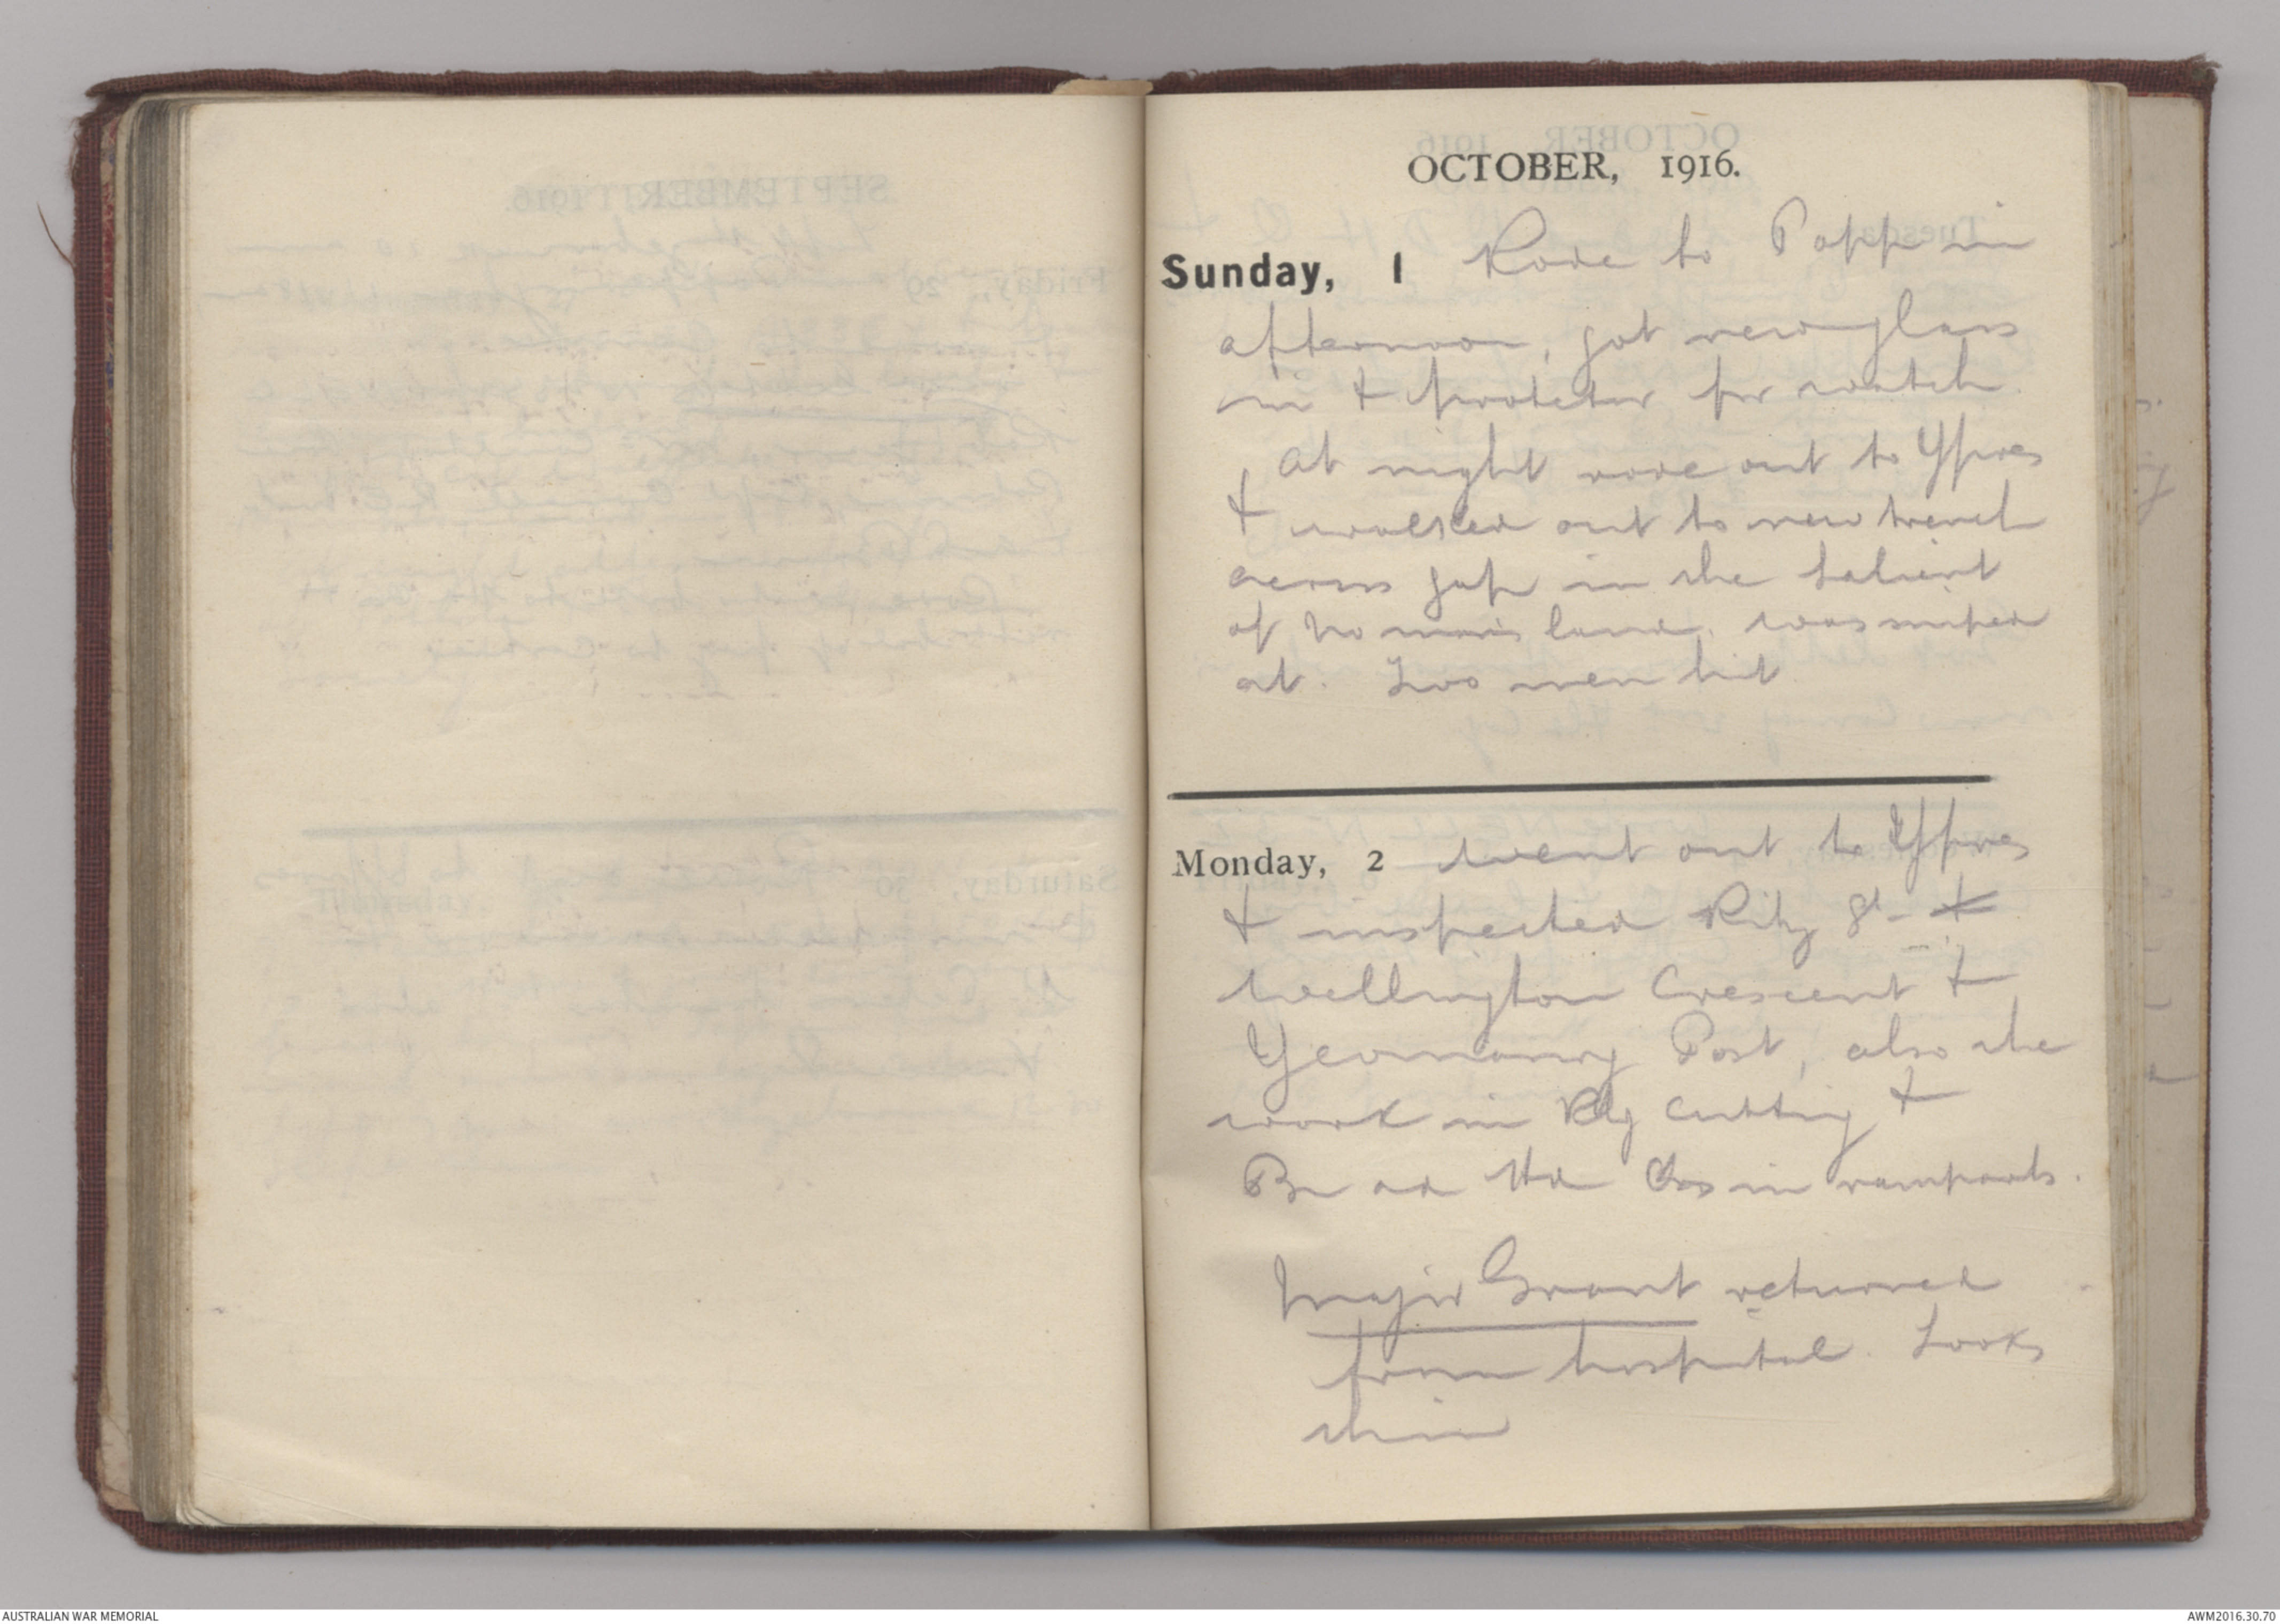 OCTOBER, 1916.
Sunday, 1 Rode to Popp in
afternoon, got new glass
in & protector for watch.
At night rode out to Ypres
& walked out to new trench
across gap in the Salient
of No mans land. Was sniped
at. Two men hit.
Monday, 2 Went out to Ypres
& inspected Ritz St - &
Wellington Crescent &
Yeomanry Post, also the
work in Rly Cutting &
Bn Hd Qrs in ramparts.
Major Grant returned
from hospital. Looks
thin
AUSTRALIAN WAR MEMORIAL
AWM2016.30.70